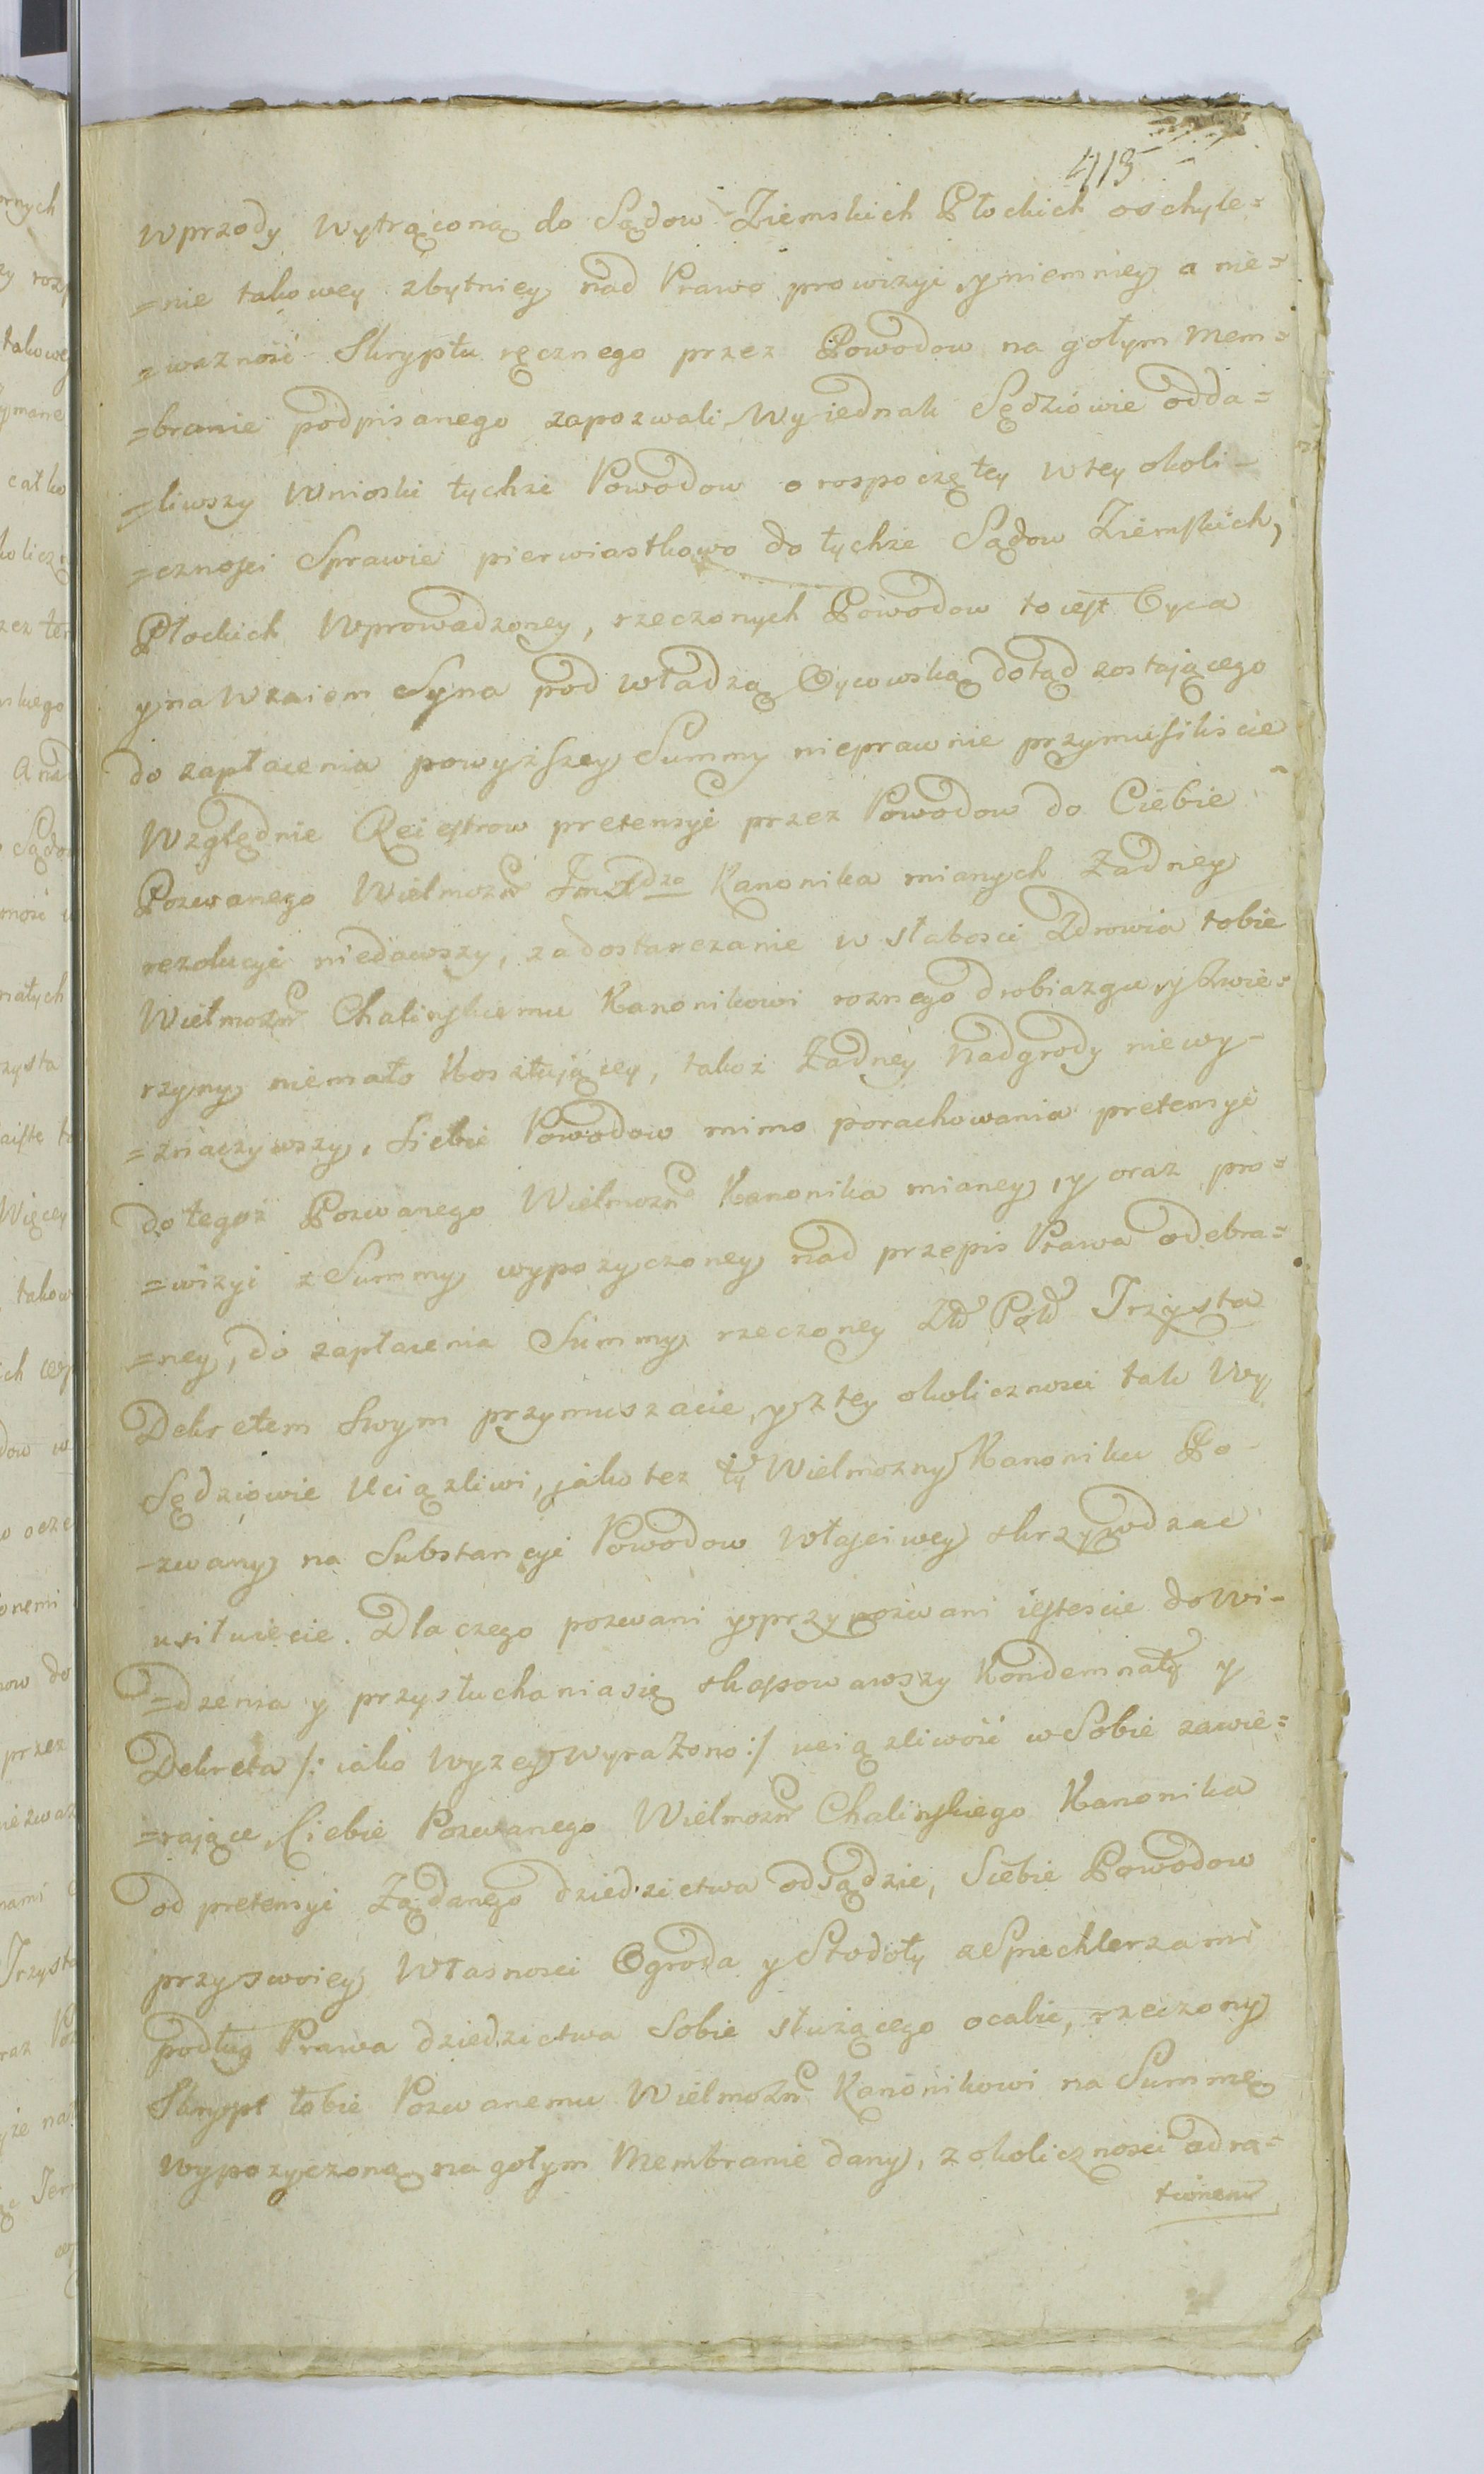 413
wprzody wytrąconą do Sądow Ziemskich Płockich o uchyle=
=nie takowey zbytniey nad Prawo prowizyi, y niemniey a nie=
=waznosć Skryptu ręcznego przez Powodow na gołym Mem=
=branie podpisanego zapozwali Wy iednak Sędziowie odda=
=liwszy Wnioski tychże Powodow o rospoczętey w tey okoli-
=cznosci Sprawie pierwiastkowo do tychże Sądow Ziemskich,
Płockich Wprowadzoney, rzeczonych Powodow to iest Oyca
y na Wzaiem Syna pod władzą Oycowską dotąd zostającego
do zapłacenia powyższey Summy nieprawnie przymusiliscie
Względnie Reiestrow pretensyi przez Powodow do Ciebie
Pozwanego Wielmożn Kanonika mianych Żadney
rezolucyi niedawszy, za dostarczanie w słabosci Zdrowia tobie
Wielmożn Chalinskiemu Kanonikowi roznego drobiazgu, y Zwie=
rzyny niemało Kosztującey, takoż Żadney Nadgrody niewy-
=znaczywszy, Siebie Powodow mimo porachowania pretensyi
do tegoż Pozwanego Wielmożn Kanonika mianey, y oraz pro=
=wizyi z Summy wypozyczoney nad przepis Prawa odebra=
=ney, do zapłacenia Summy rzeczoney Zł Pol Trzysta
Dekretem Swym przymuszacie, y z tey okolicznosci tak Wy
Sędziowie Uciązliwi, jako tez ty Wielmozny Kanoniku Po-
-zwany na Substancyi Powodow własciwey skrzywdzac
usiłuiecie. Dla czego pozwani y przypozwani iestescie do Wi-
=dzenia y przysłuchania się skassowawszy Kondemnaty y
Dekreta /: iako Wyzey Wyrażono :/ uciązliwość w Sobie zawie=
=rające, Ciebie Pozwanego Wielmożn Chalinskiego Kanonika
od pretensyi Ządanego dziedzictwa odsądzic, Siebie Powodow
przy swoiey Własnosci Ogroda y Stodoły z Spichlerzami
podług Prawa dziedzictwa Sobie służącego ocalic, rzeczony
Skrypt tobie Pozwanemu Wielmożn Kanonikowi na Summę
wypozyczoną na gołym Membranie dany, z okolicznosci ad ra=
tionem